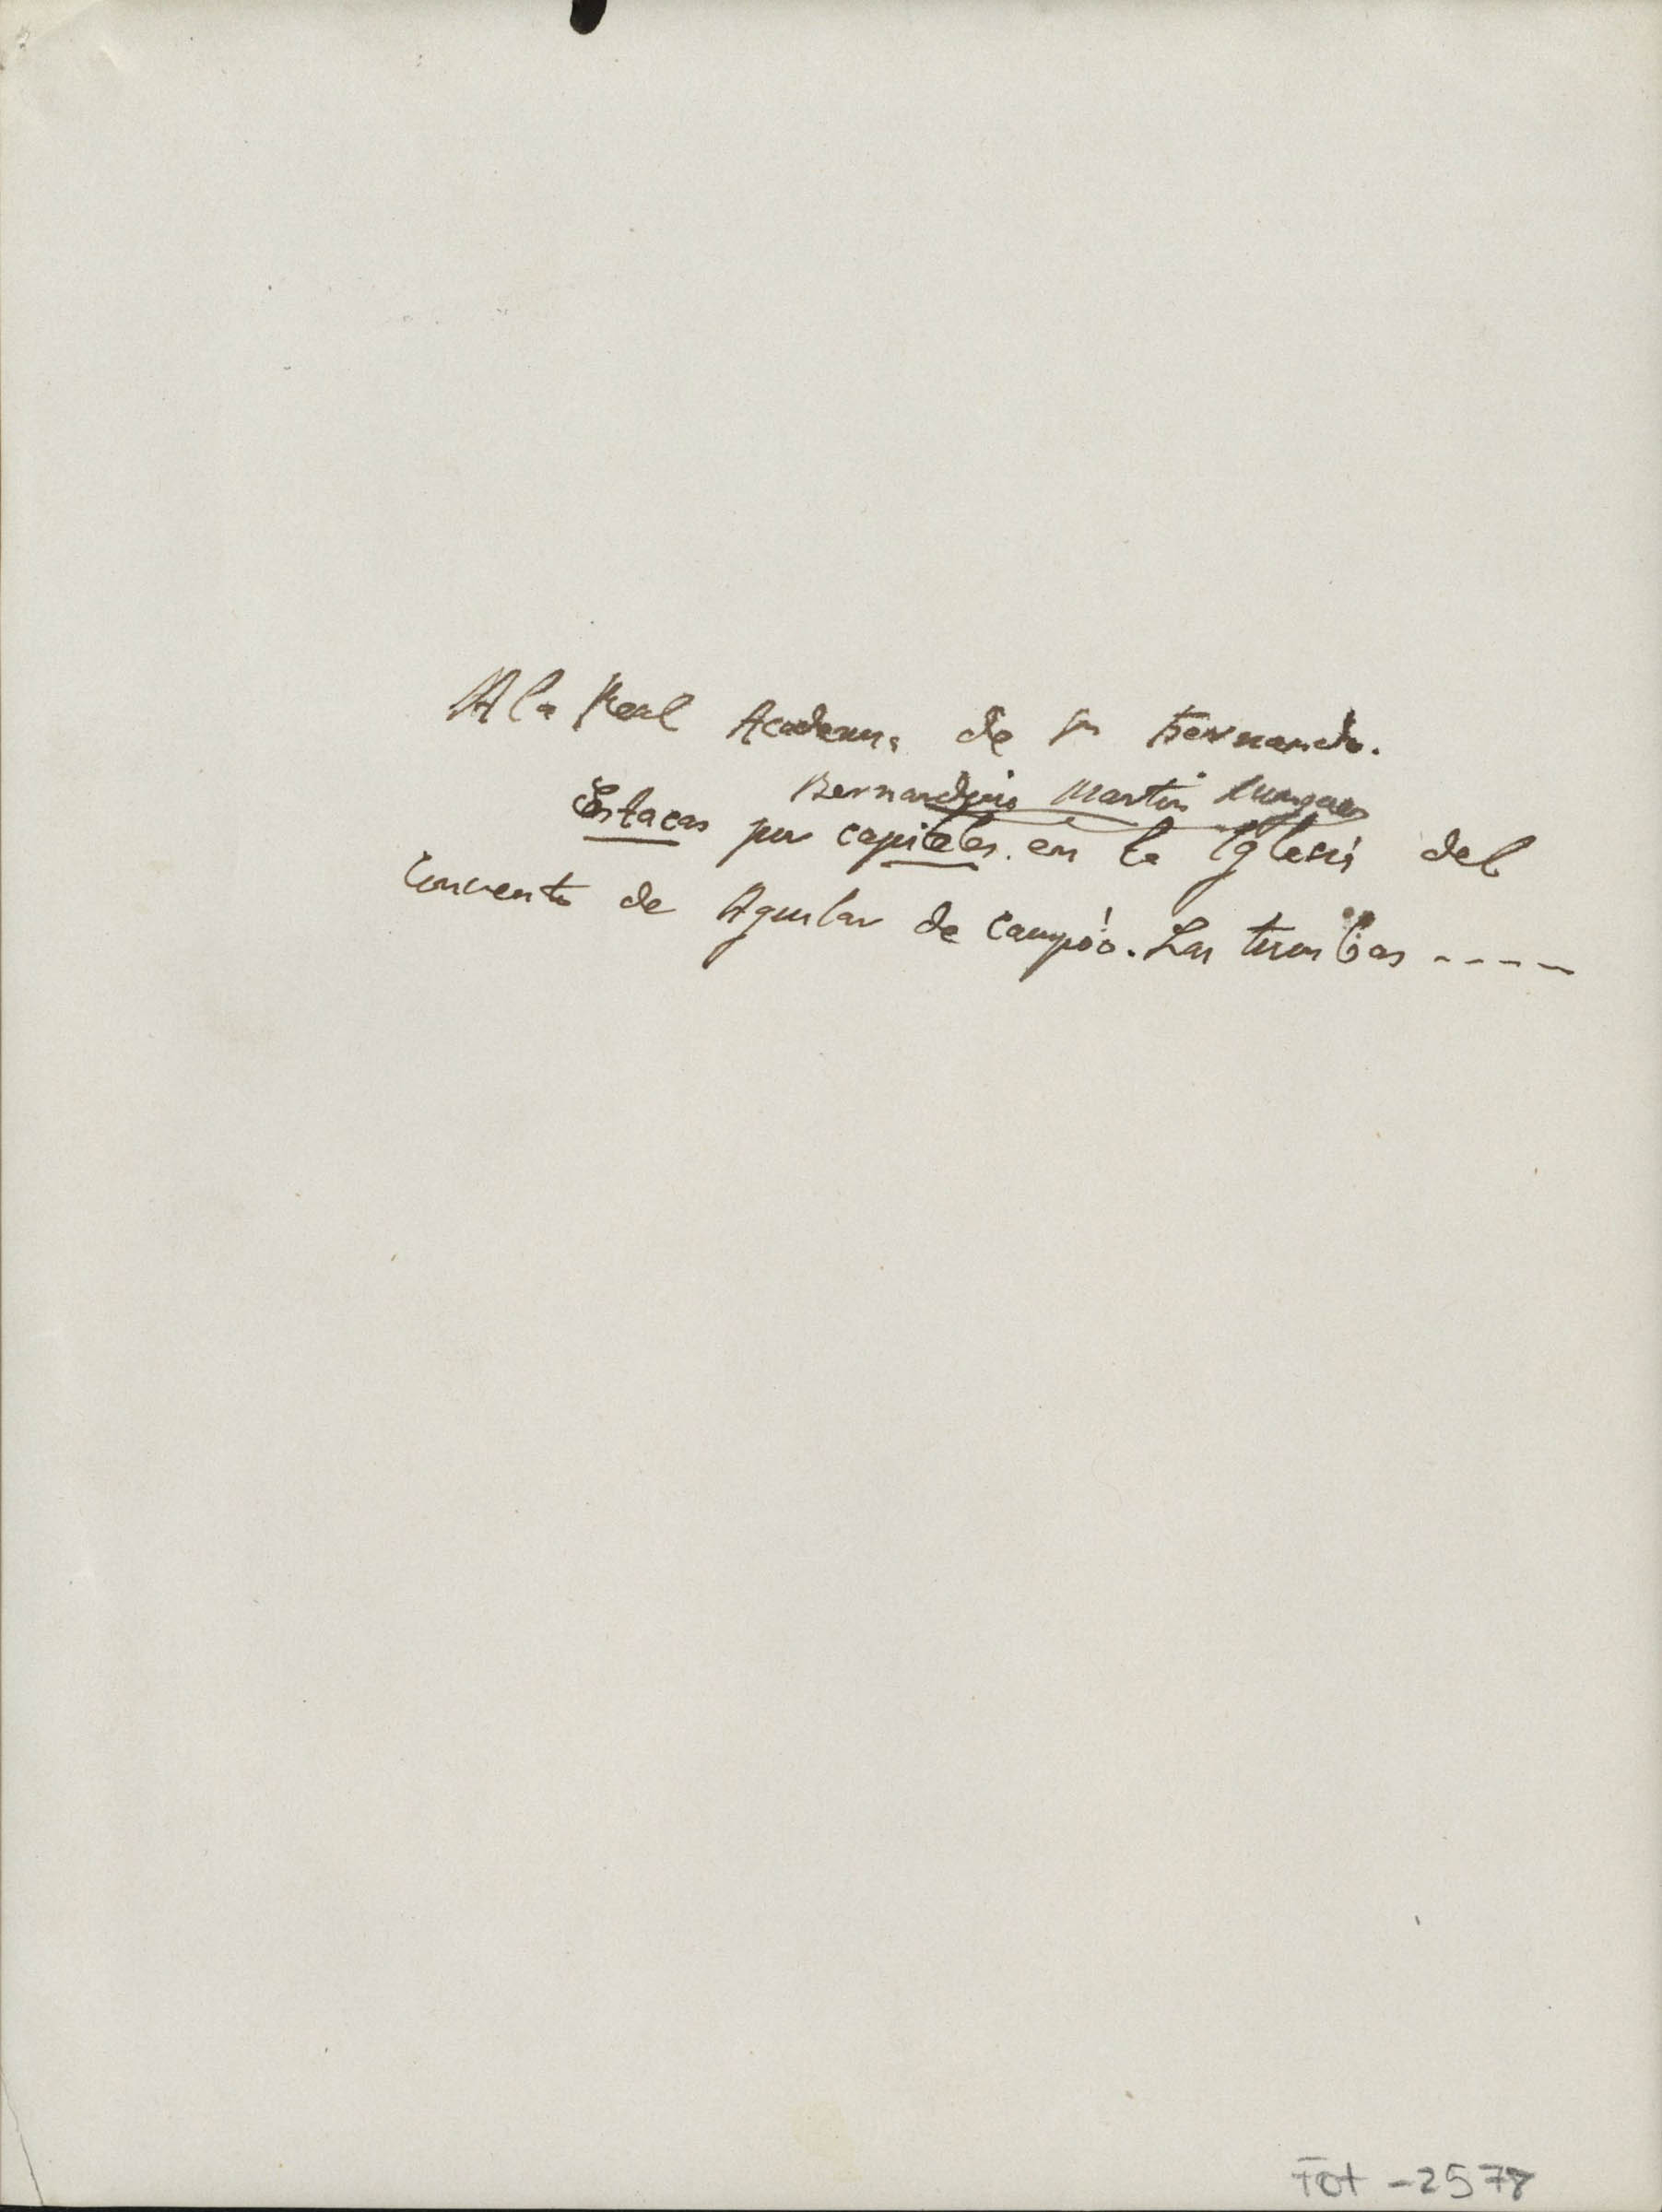 A la Real Academia de Sn Fernando.
Bernardino Martin Minguez
Estacas por capiteles. en la Iglesia del
Convento de Aguilar de Campóo. Las tumbas ----
Fot - 2578